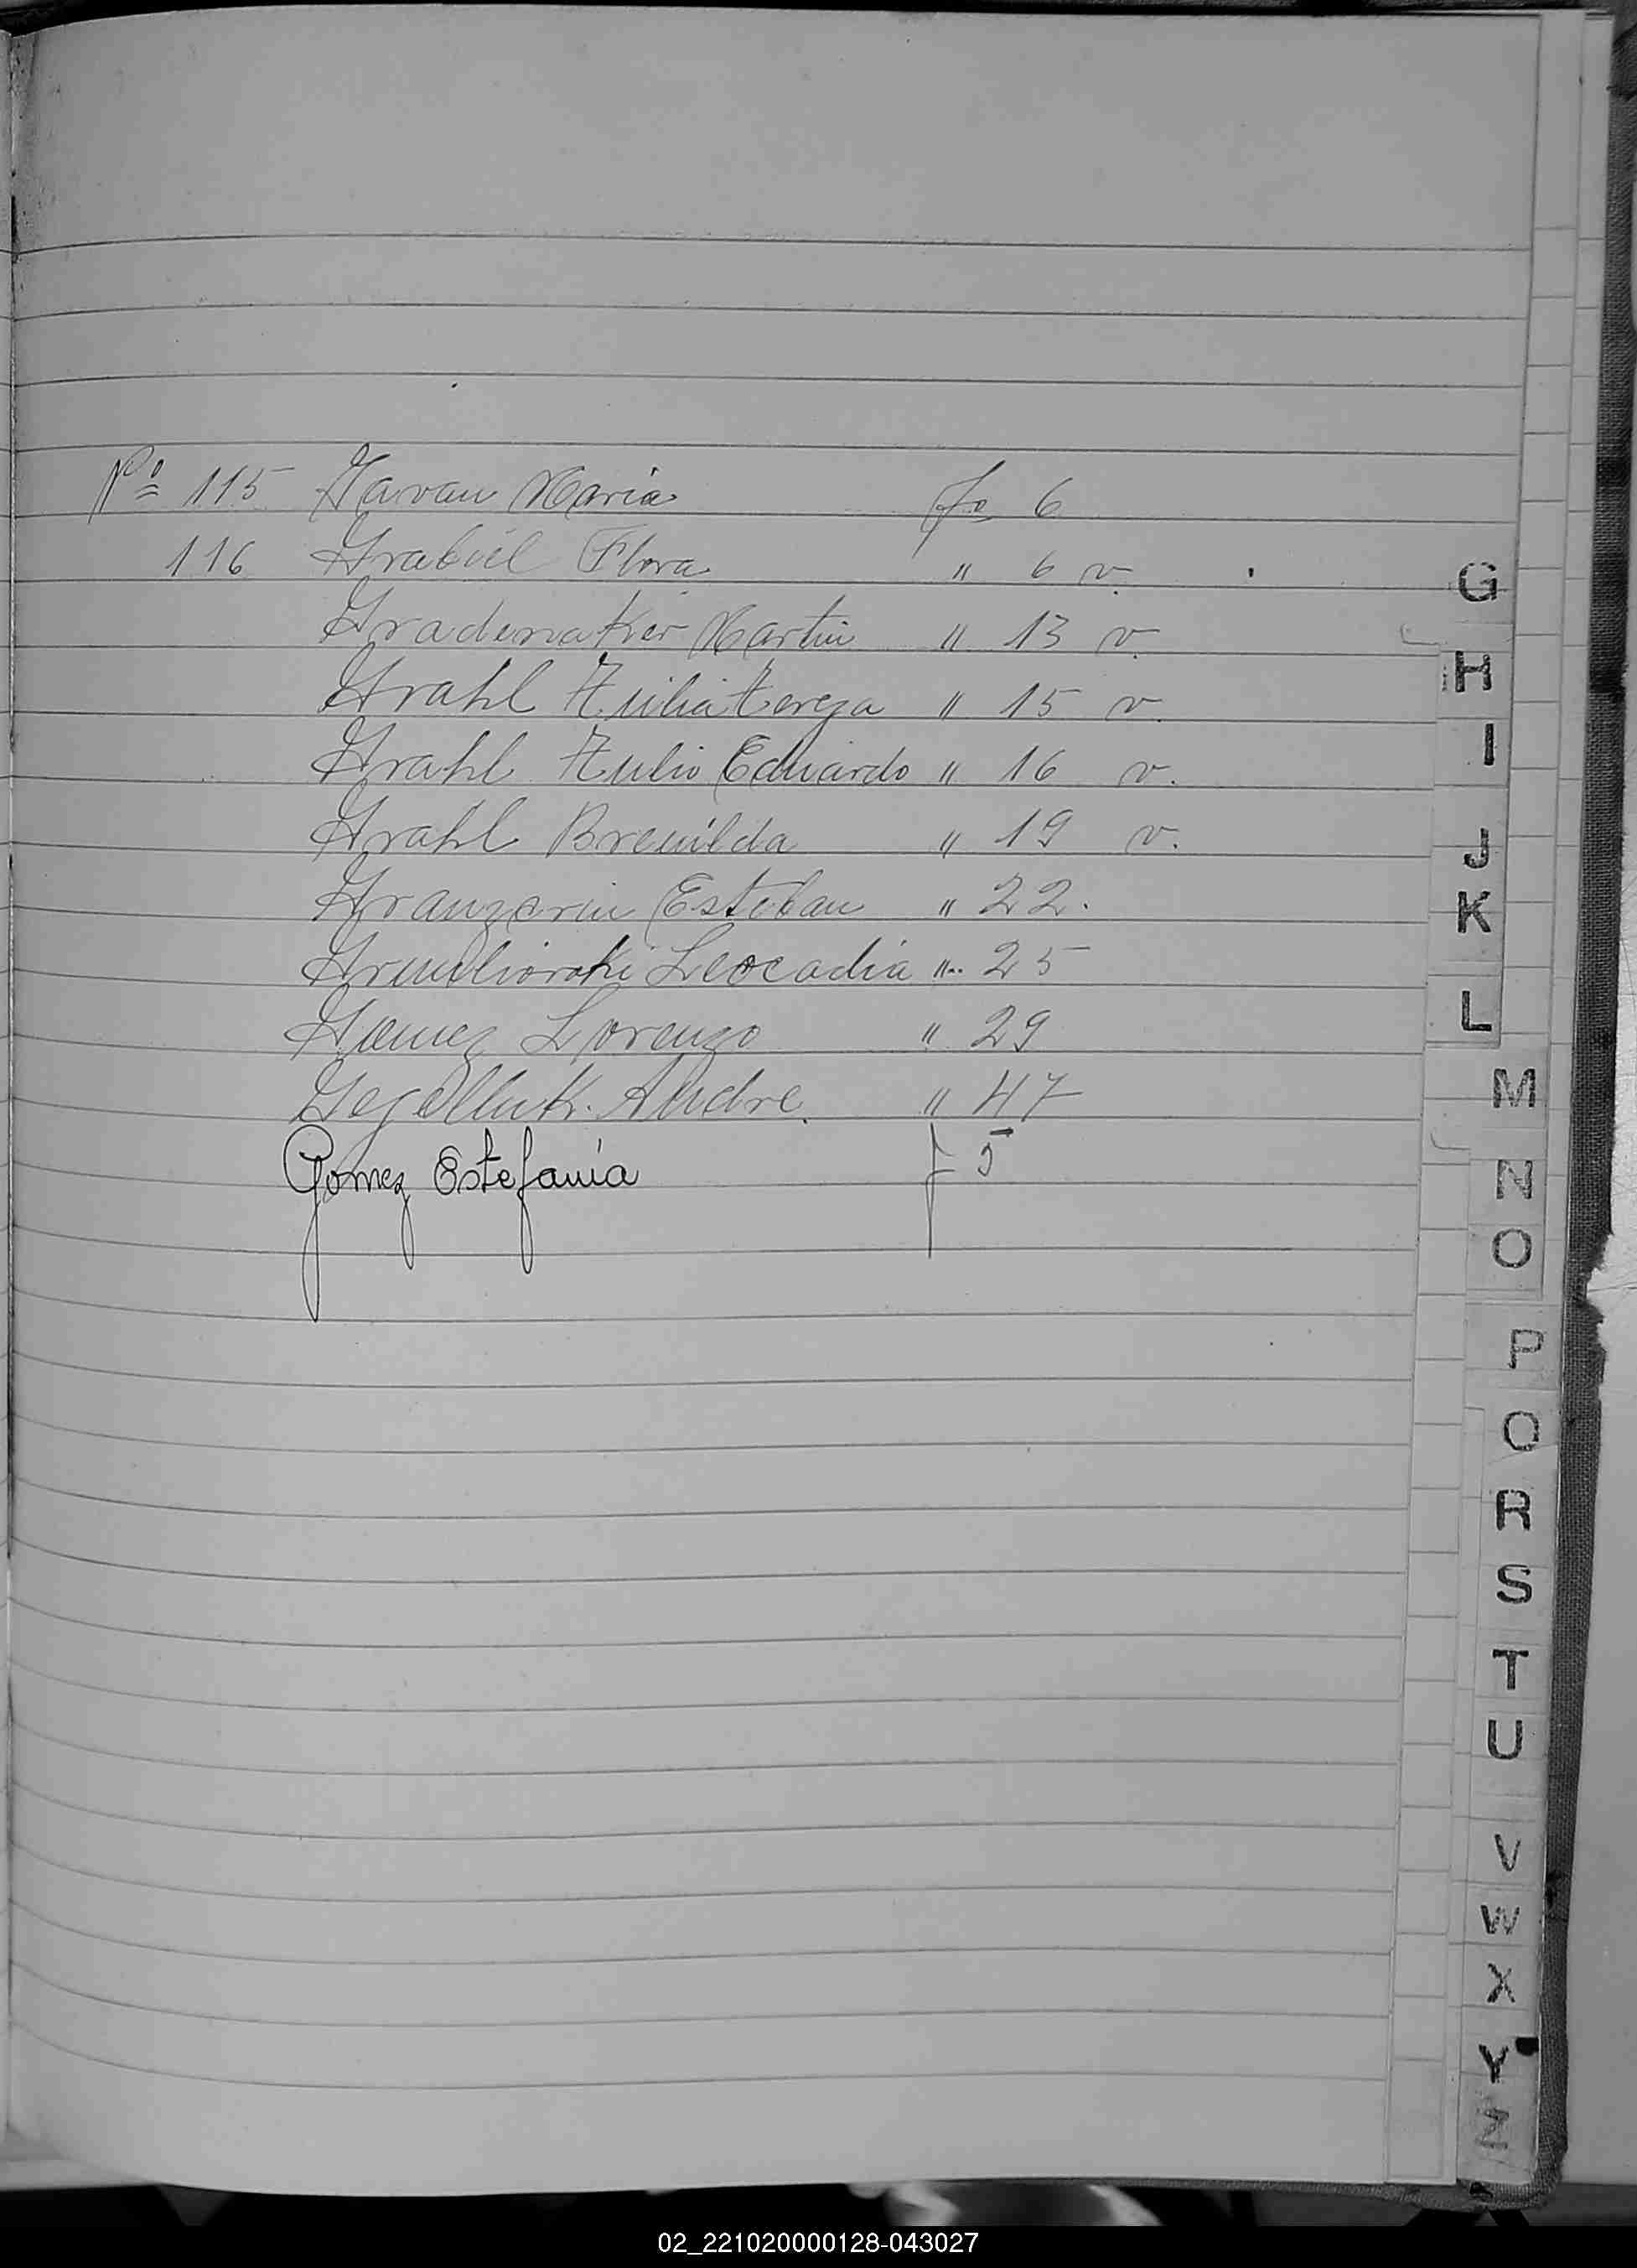 Nº 115 Gavan Maria fo 6
116 Grabiel Flora " 6 v.
Gradenaker Martin " 13 v.
Grahl Julia tereza " 15 v.
Grahl Julio Eduardo " 16 v.
Grahl Breuilda " 19 v.
Granzerin Esteban " 22.
Leocadia " 25
Gomez Lorenzo " 29
Andre. " 47
Gomez Estefania f 5
G
H
I
J
K
L
M
N
O
P
Q
R
S
T
U
V
W
X
Y
Z
02_221020000128-043027